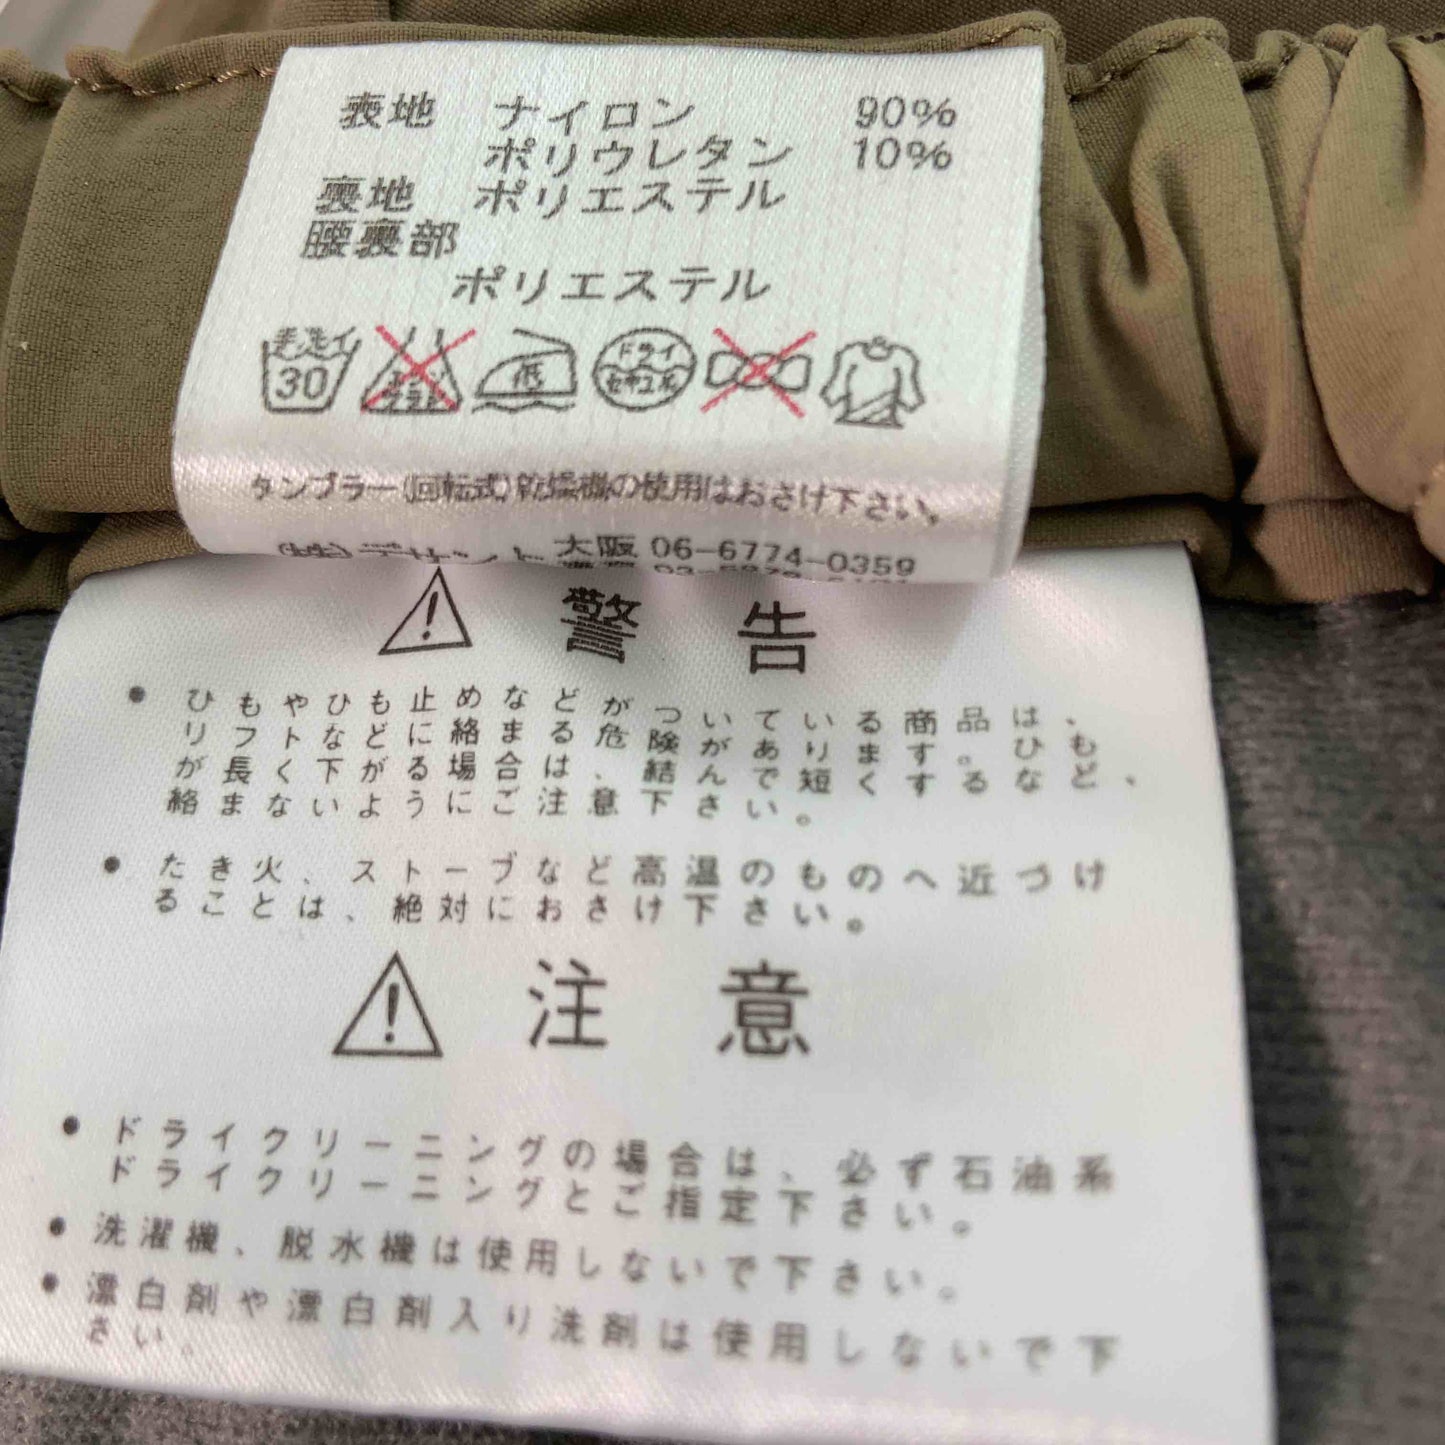 表地 ナイロン 90%
ポリウレタン 10%
裏地 ポリエステル
腰裏部
ポリエステル
手洗イ 30
エンソサラシ
低
ドライ
セキユ系
タンブラー(回転式)乾燥機の使用はおさけ下さい。
(株)デサント 大阪 06-6774-0359
警告
● ひもやひも止めなどがついている商品は、
リフトなどに絡まる危険があります。ひも
が長く下がる場合は、結んで短くするなど、
絡まないようにご注意下さい。
● たき火、ストーブなど高温のものへ近づけ
ることは、絶対におさけ下さい。
注意
● ドライクリーニングの場合は、必ず石油系
ドライクリーニングとご指定下さい。
● 洗濯機、脱水機は使用しないで下さい。
● 漂白剤や漂白剤入り洗剤は使用しないで下
さい。